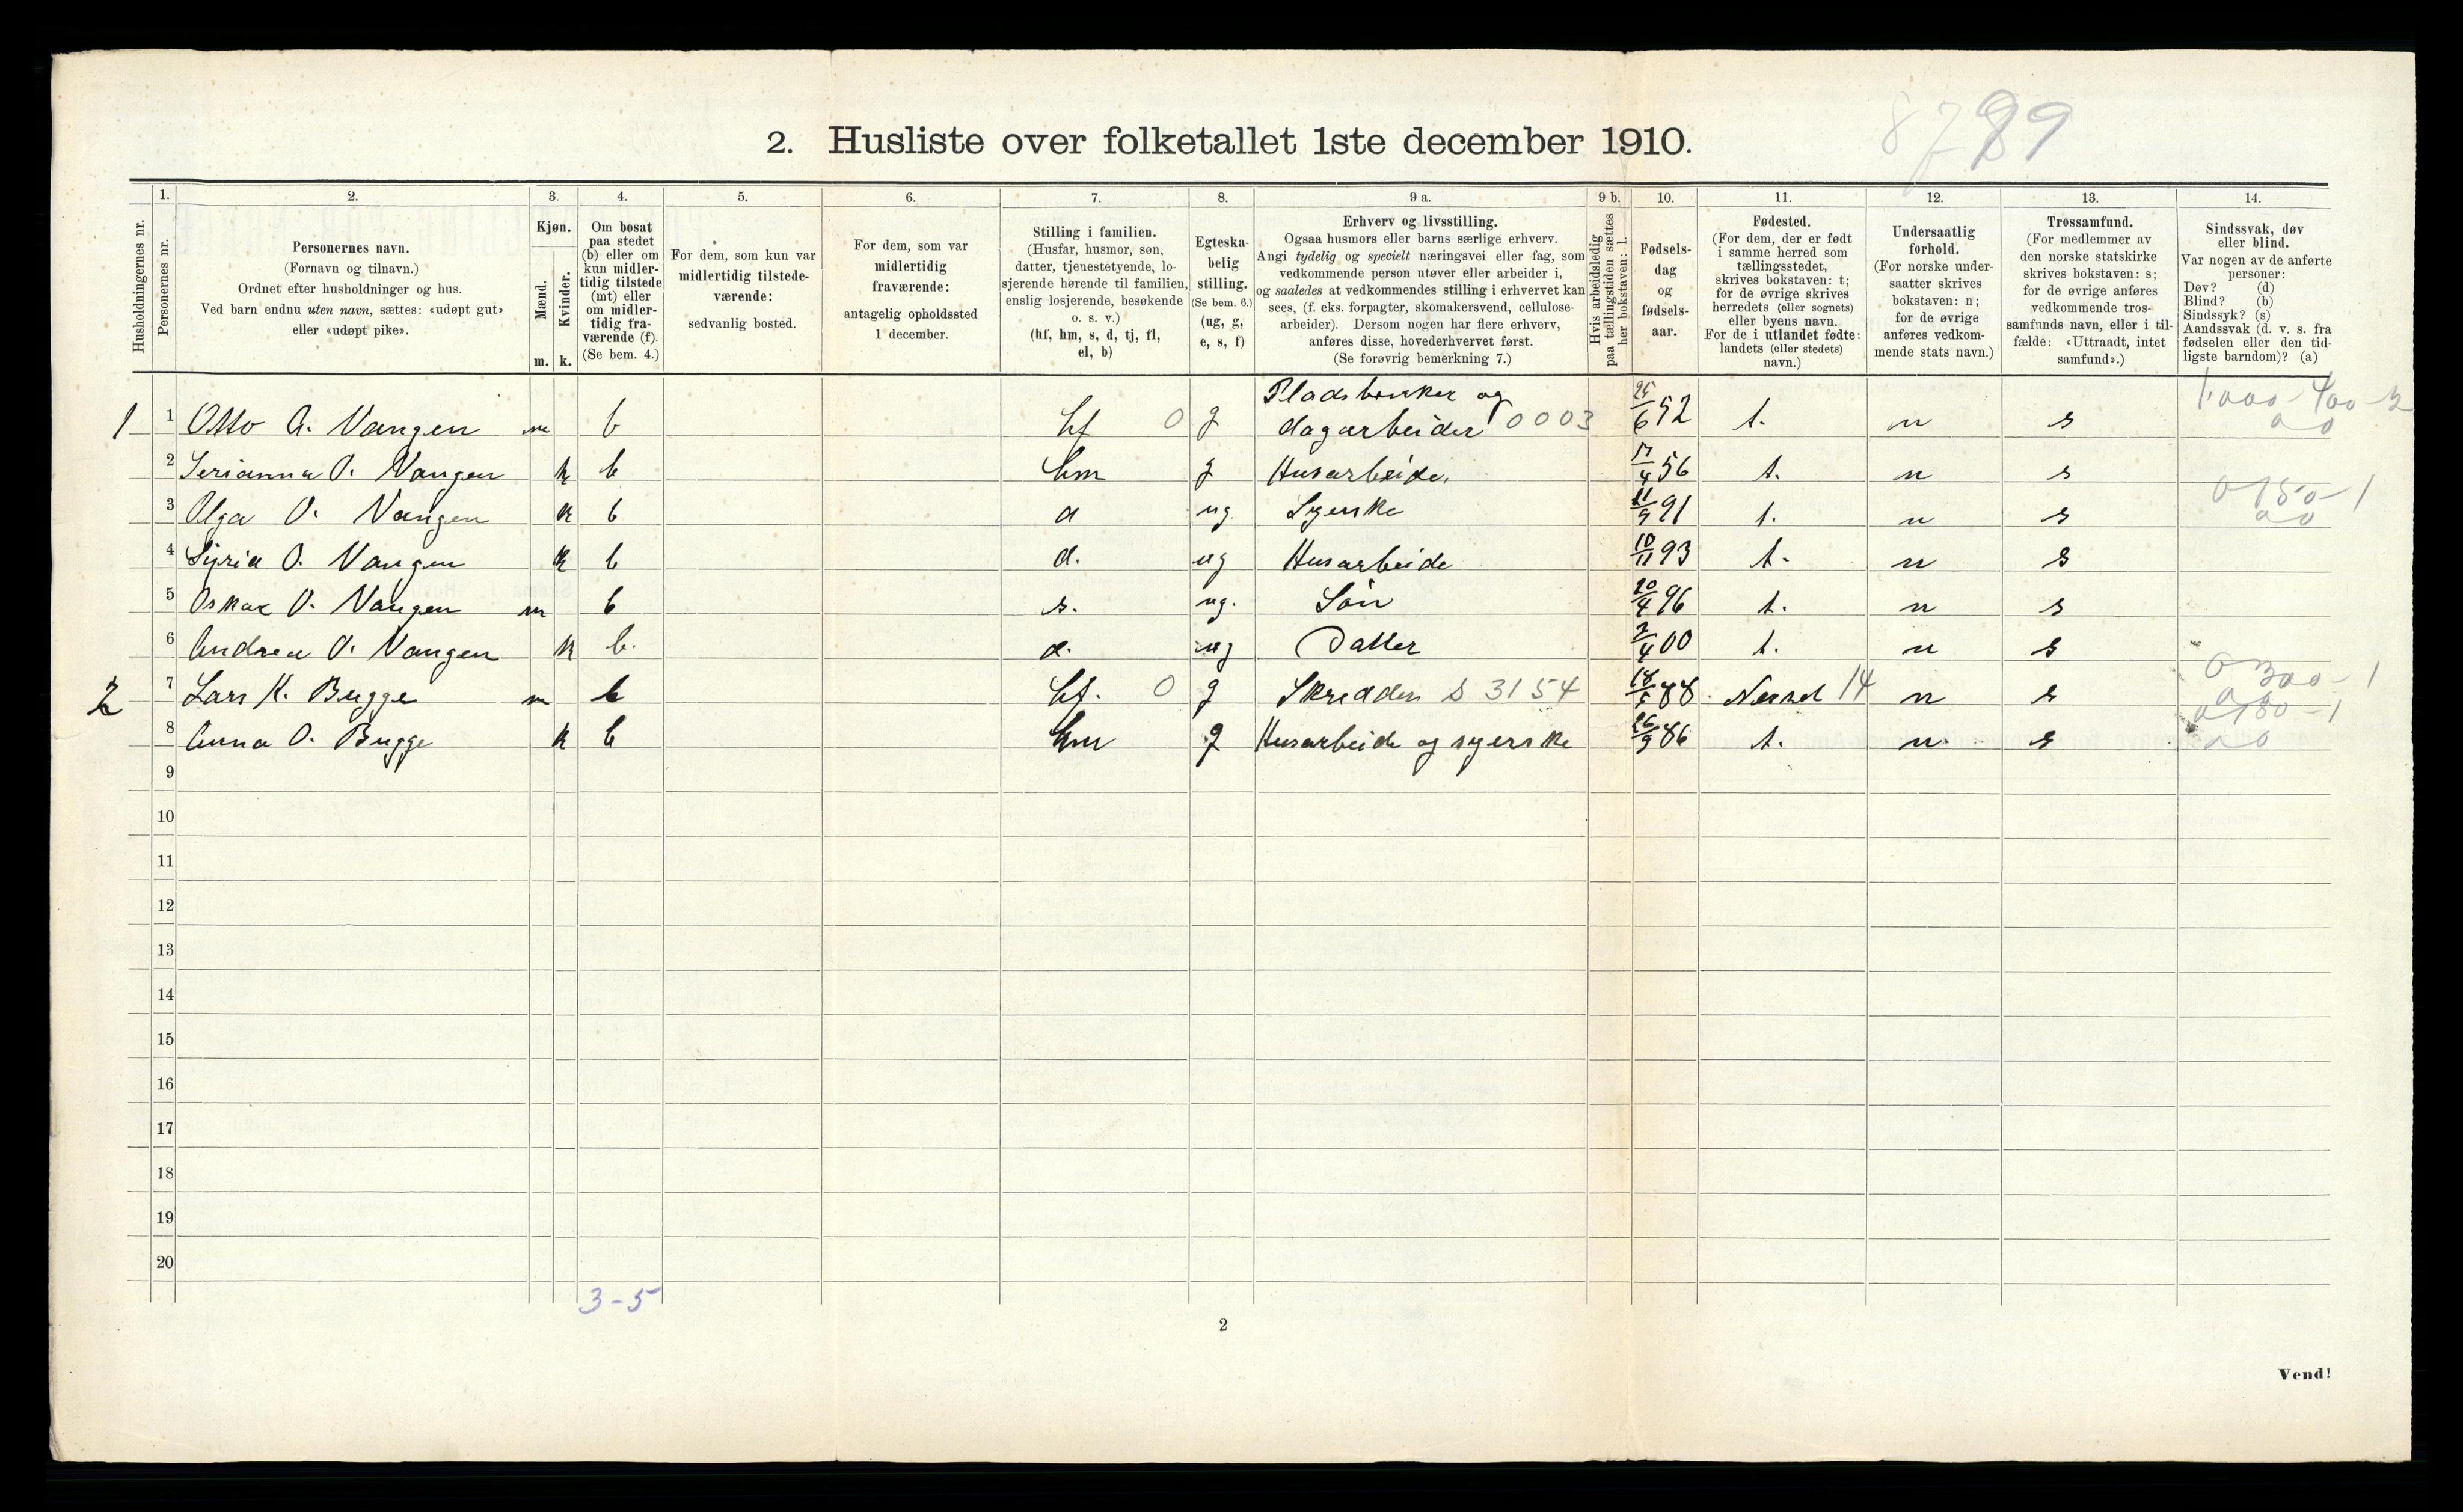 8789
2. Husliste over folketallet 1ste december 1910.
Husholdningernes nr.
1.
Personernes nr.
2.
Personernes navn.
(Fornavn og tilnavn.)
Ordnet efter husholdninger og hus.
Ved barn endnu uten navn, sættes: «udøpt gut»
eller «udøpt pike».
3.
Kjøn.
Mænd.
Kvinder.
m. k.
4.
Om bosat
paa stedet
(b) eller om
kun midler-
tidig tilstede
(mt) eller
om midler-
tidig fra-
værende (f).
(Se bem. 4.)
5.
For dem, som kun var
midlertidig tilstede-
værende:
sedvanlig bosted.
6.
For dem, som var
midlertidig
fraværende:
antagelig opholdssted
1 december.
7.
Stilling i familien.
(Husfar, husmor, søn,
datter, tjenestetyende, lo-
sjerende hørende til familien,
enslig losjerende, besøkende
o. s. v.)
(hf, hm, s, d, tj, fl,
el, b)
8.
Egteska-
belig
stilling.
(Se bem. 6.)
(ug, g,
e, s, f)
9 a.
Erhverv og livsstilling.
Ogsaa husmors eller barns særlige erhverv.
Angi tydelig og specielt næringsvei eller fag, som
vedkommende person utøver eller arbeider i,
og saaledes at vedkommendes stilling i erhvervet kan
sees, (f. eks. forpagter, skomakersvend, cellulose-
arbeider). Dersom nogen har flere erhverv,
anføres disse, hovederhvervet først.
(Se forøvrig bemerkning 7.)
9 b.
Hvis arbeidsledig
paa tællingstiden sættes
her bokstaven: l.
10.
Fødsels-
dag
og
fødsels-
aar.
11.
Fødested.
(For dem, der er født
i samme herred som
tællingsstedet,
skrives bokstaven: t;
for de øvrige skrives
herredets (eller sognets)
eller byens navn.
For de i utlandet fødte:
landets (eller stedets)
navn.)
12.
Undersaatlig
forhold.
(For norske under-
saatter skrives
bokstaven: n;
for de øvrige
anføres vedkom-
mende stats navn.)
13.
Trossamfund.
(For medlemmer av
den norske statskirke
skrives bokstaven: s;
for de øvrige anføres
vedkommende tros-
samfunds navn, eller i til-
fælde: «Uttraadt, intet
samfund».)
14.
Sindssvak, døv
eller blind.
Var nogen av de anførte
personer:
Døv? (d)
Blind? (b)
Sindssyk? (s)
Aandssvak (d. v. s. fra
fødselen eller den tid-
ligste barndom)? (a)
Pladsbruker og
1 1 Otto A. Vangen m b hf 0 g dagarbeider 0003 6 52 t. n s
2 Serianna O. Vangen k b hm g Husarbeide. 17/4 56 t. n s
3 Olga O. Vangen k b d ug Syerske 11/9 91 t. n s 0-150-1
4 Syria O. Vangen k b d. ug Husarbeide 10/11 93 t. n s
5 Oskar O. Vangen m b s. ug. Søn 20/4 96 t. n s
6 Andrea O. Vangen k b. d. ug Datter 2/4 00 t. n s
2 7 Lars K. Bugge m b hf. 0 g Skredder S 3154 18/5 88 14 n s 0 300-1
8 Anna O. Bugge k b hm g Husarbeide og syerske 26/9 86 t. n s 0 180-1
9
10
11
12
13
14
15
16
17
18
19
20
3-5
2
Vend!